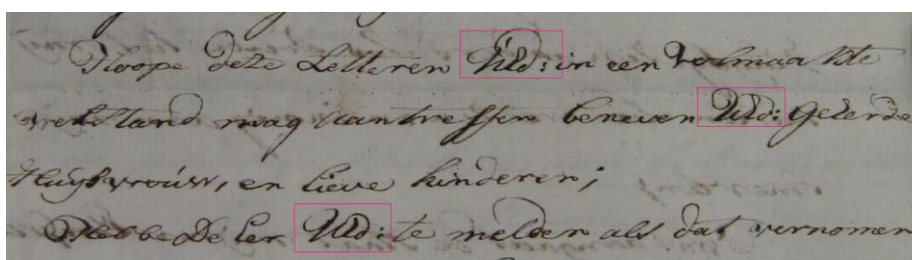 Ik hoope deze Letteren UEd: in een volmaakste
welstand mag aantreffen beneven UEd: Geeerde
Huijsvrouw, en lieve kinderen;
Hebbe De Eer UEd: te melden als dat vernomen